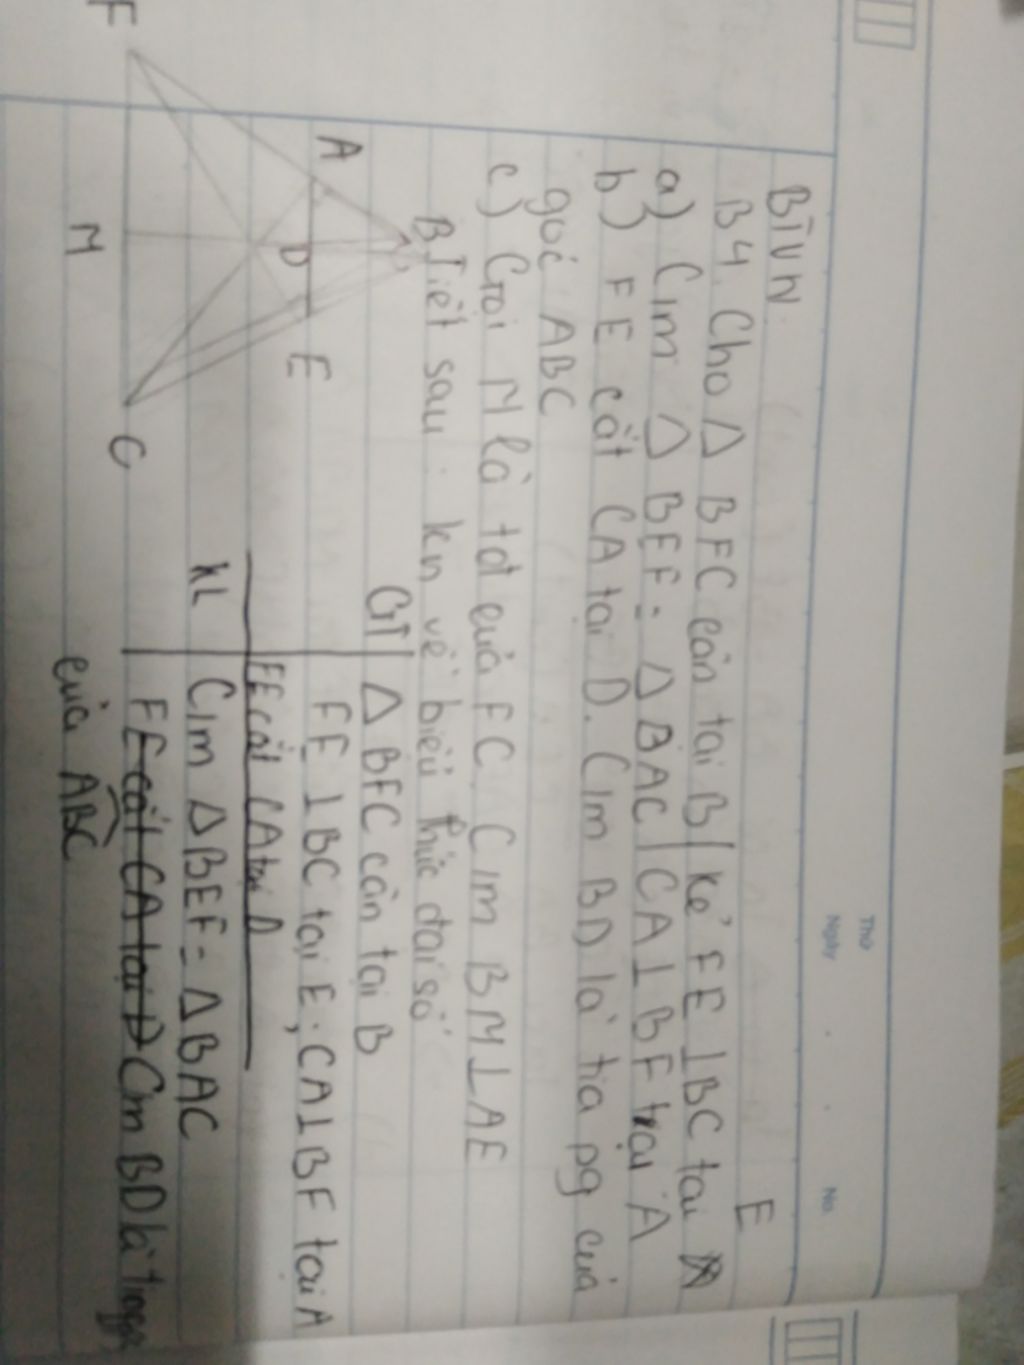 Thứ
Ngày
No.
BTVN.
E
B4. Cho Δ BFC cân tại B | kẻ FE ⊥ BC tại
a) C/m Δ BEF = Δ BAC | CA ⊥ BF tại A
b) FE cắt CA tại D. C/m BD là tia pg của
góc ABC
c) Gọi M là tđ của FC. C/m BM ⊥ AE
Tiết sau: kn về biểu thức đại số
GT | Δ BFC cân tại B
FE ⊥ BC tại E; CA ⊥ BF tại A
FE cắt CA tại D
KL | C/m Δ BEF = Δ BAC
FE cắt CA tại D Cm BD là tia pg
của ABC
F
A
B
D
E
M
C